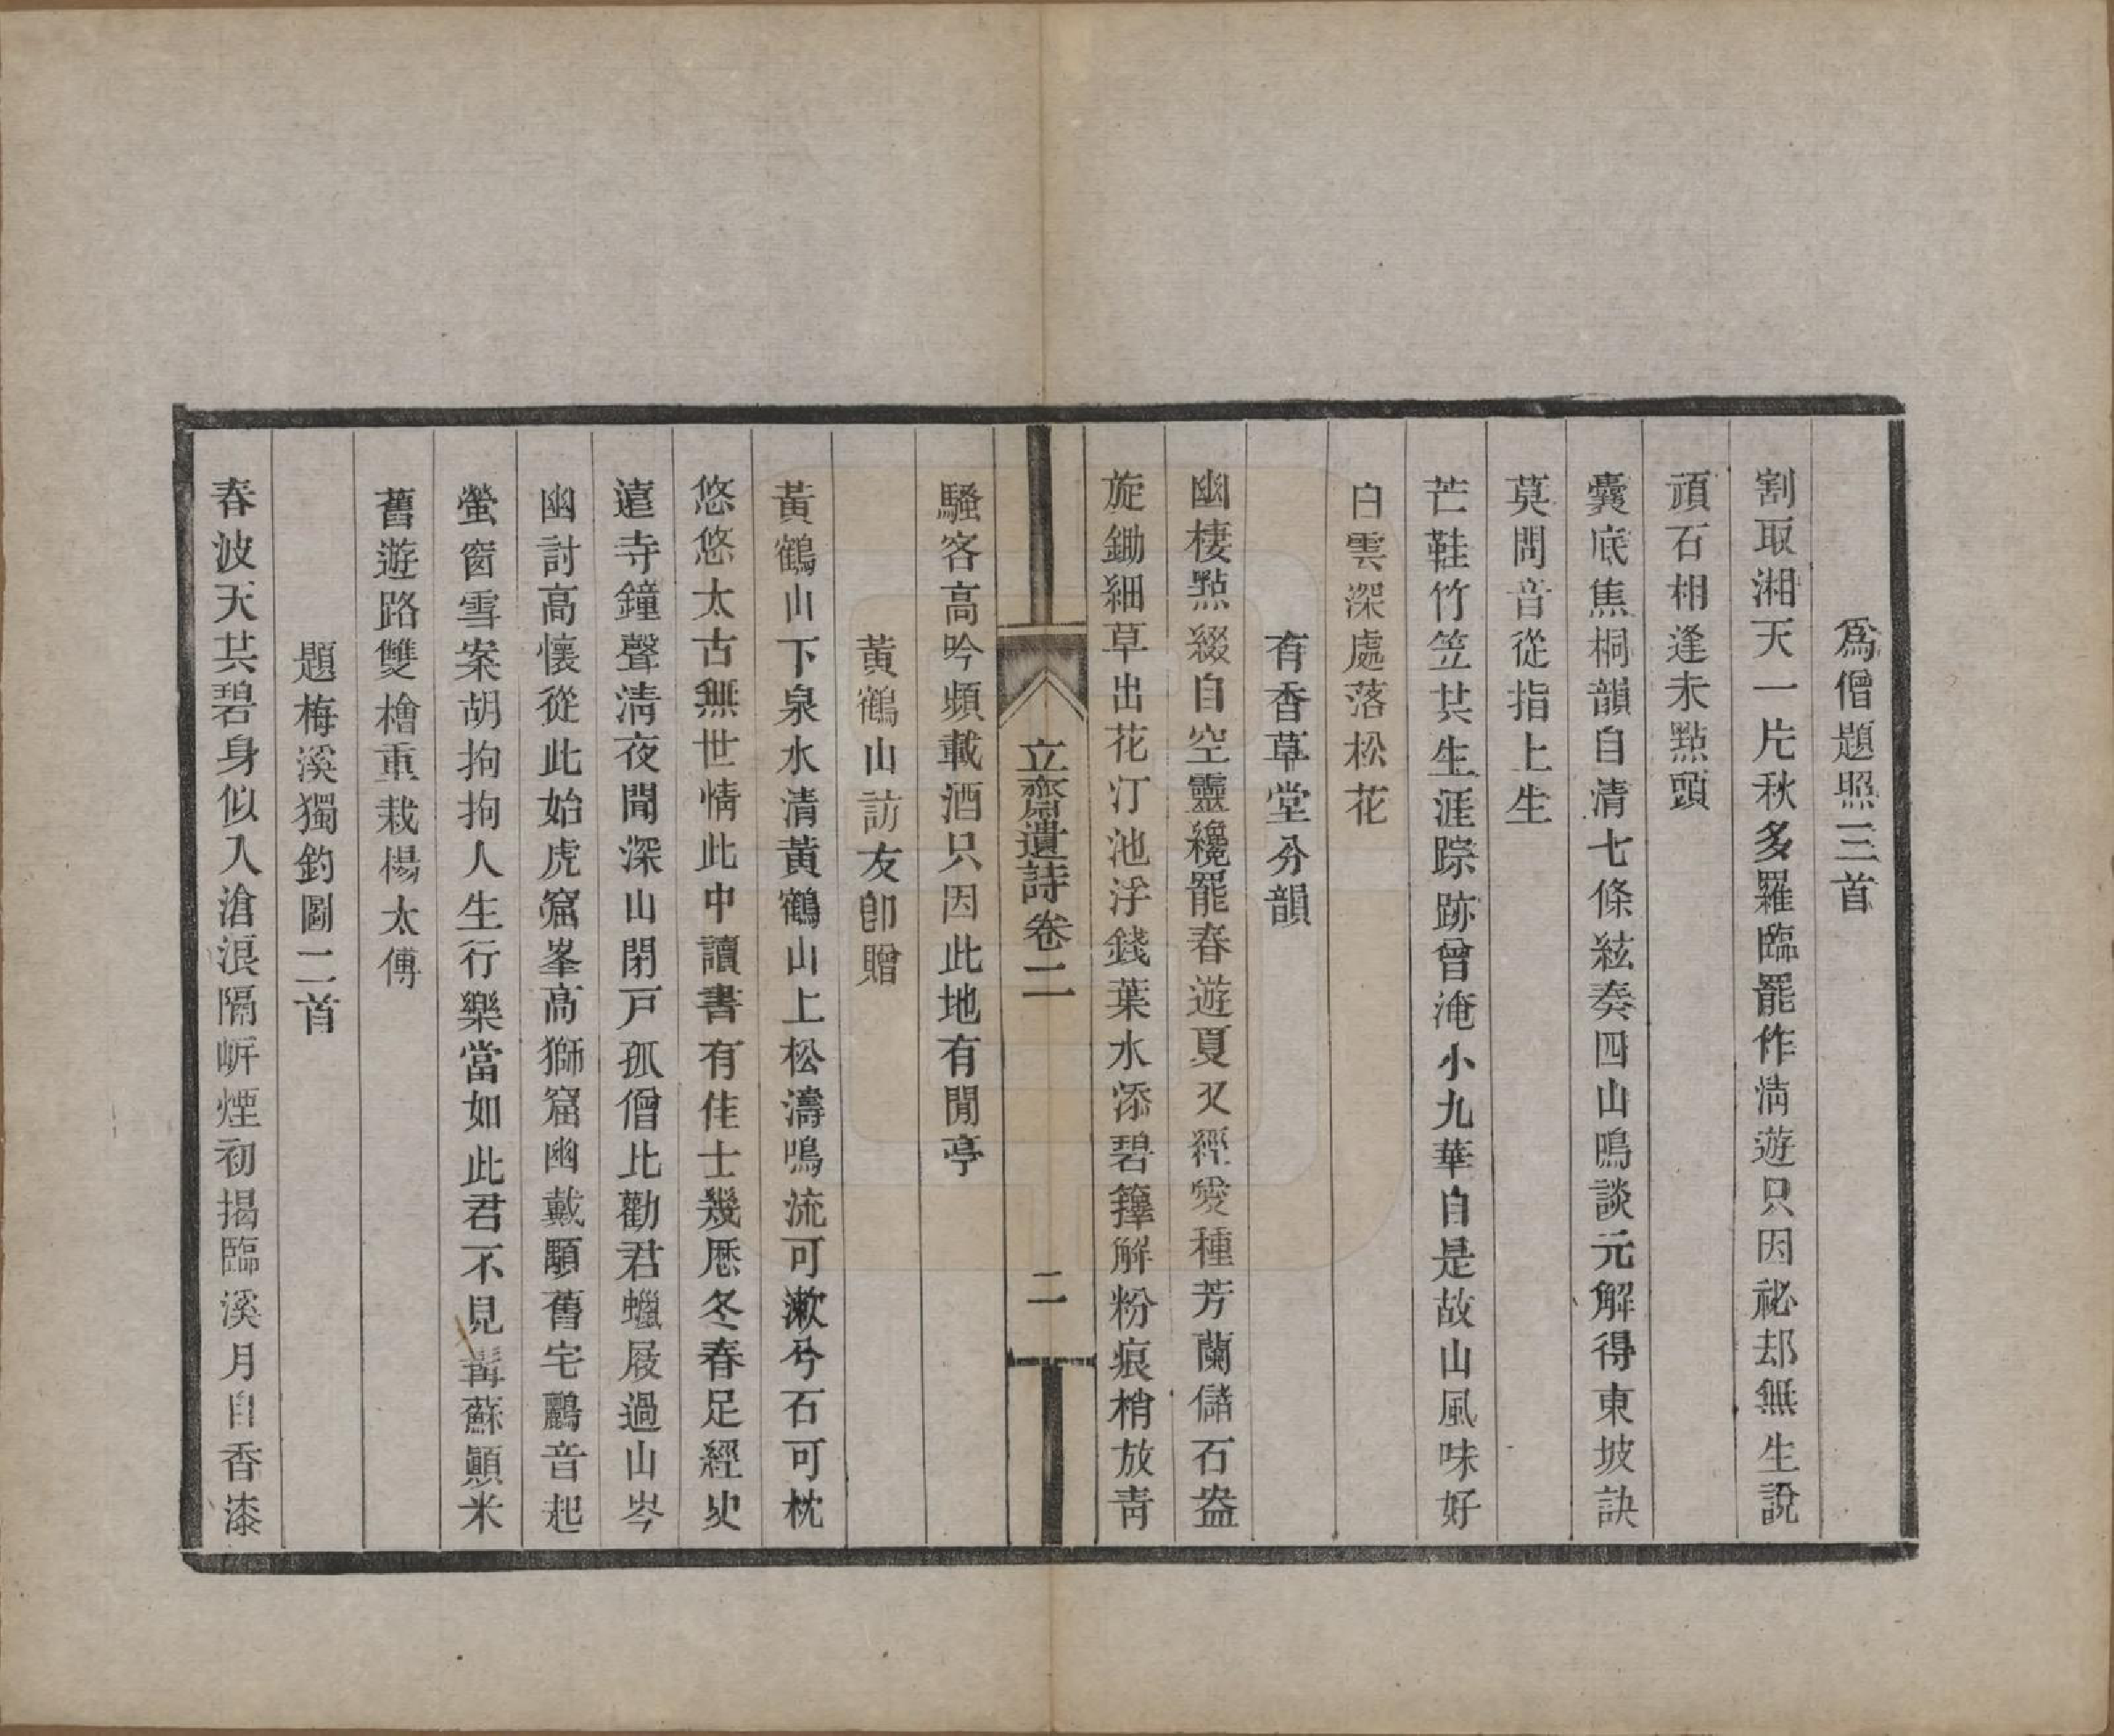 爲僧題照三首
割取湘天一片秋多羅臨罷作淸遊只因祕却無生說
頑石相逢未點頭
囊底焦桐韻自清七條絃奏四山鳴談元解得東坡訣
莫問音從指上生
芒鞋竹笠共生涯踪跡曾淹小九華自是故山風味好
白雲深處落松花
有香草堂分韻
幽棲點綴自空靈纔罷春遊夏又經愛種芳蘭儲石盎
旋鋤細草出花汀池浮錢葉水添碧籜解粉痕梢放靑
立齋遺詩卷二
二
騷客高吟頻載酒只因此地有閒亭
黃鶴山訪友卽贈
黃鶴山下泉水清黃鶴山上松濤鳴流可漱兮石可枕
悠悠太古無世情此中讀書有佳士幾歷冬春足經史
遠寺鐘聲淸夜聞深山閉戸孤僧比勸君蠟屐過山岑
幽討高懷從此始虎窟峯高獅窟幽戴顒舊宅鸝音起
螢窗雪案胡拘拘人生行樂當如此君不見髯蘇顚米
舊遊路雙檜重栽楊太傅
題梅溪獨釣圖二首
春波天共碧身似入滄浪隔㟁煙初揭臨溪月自香漆